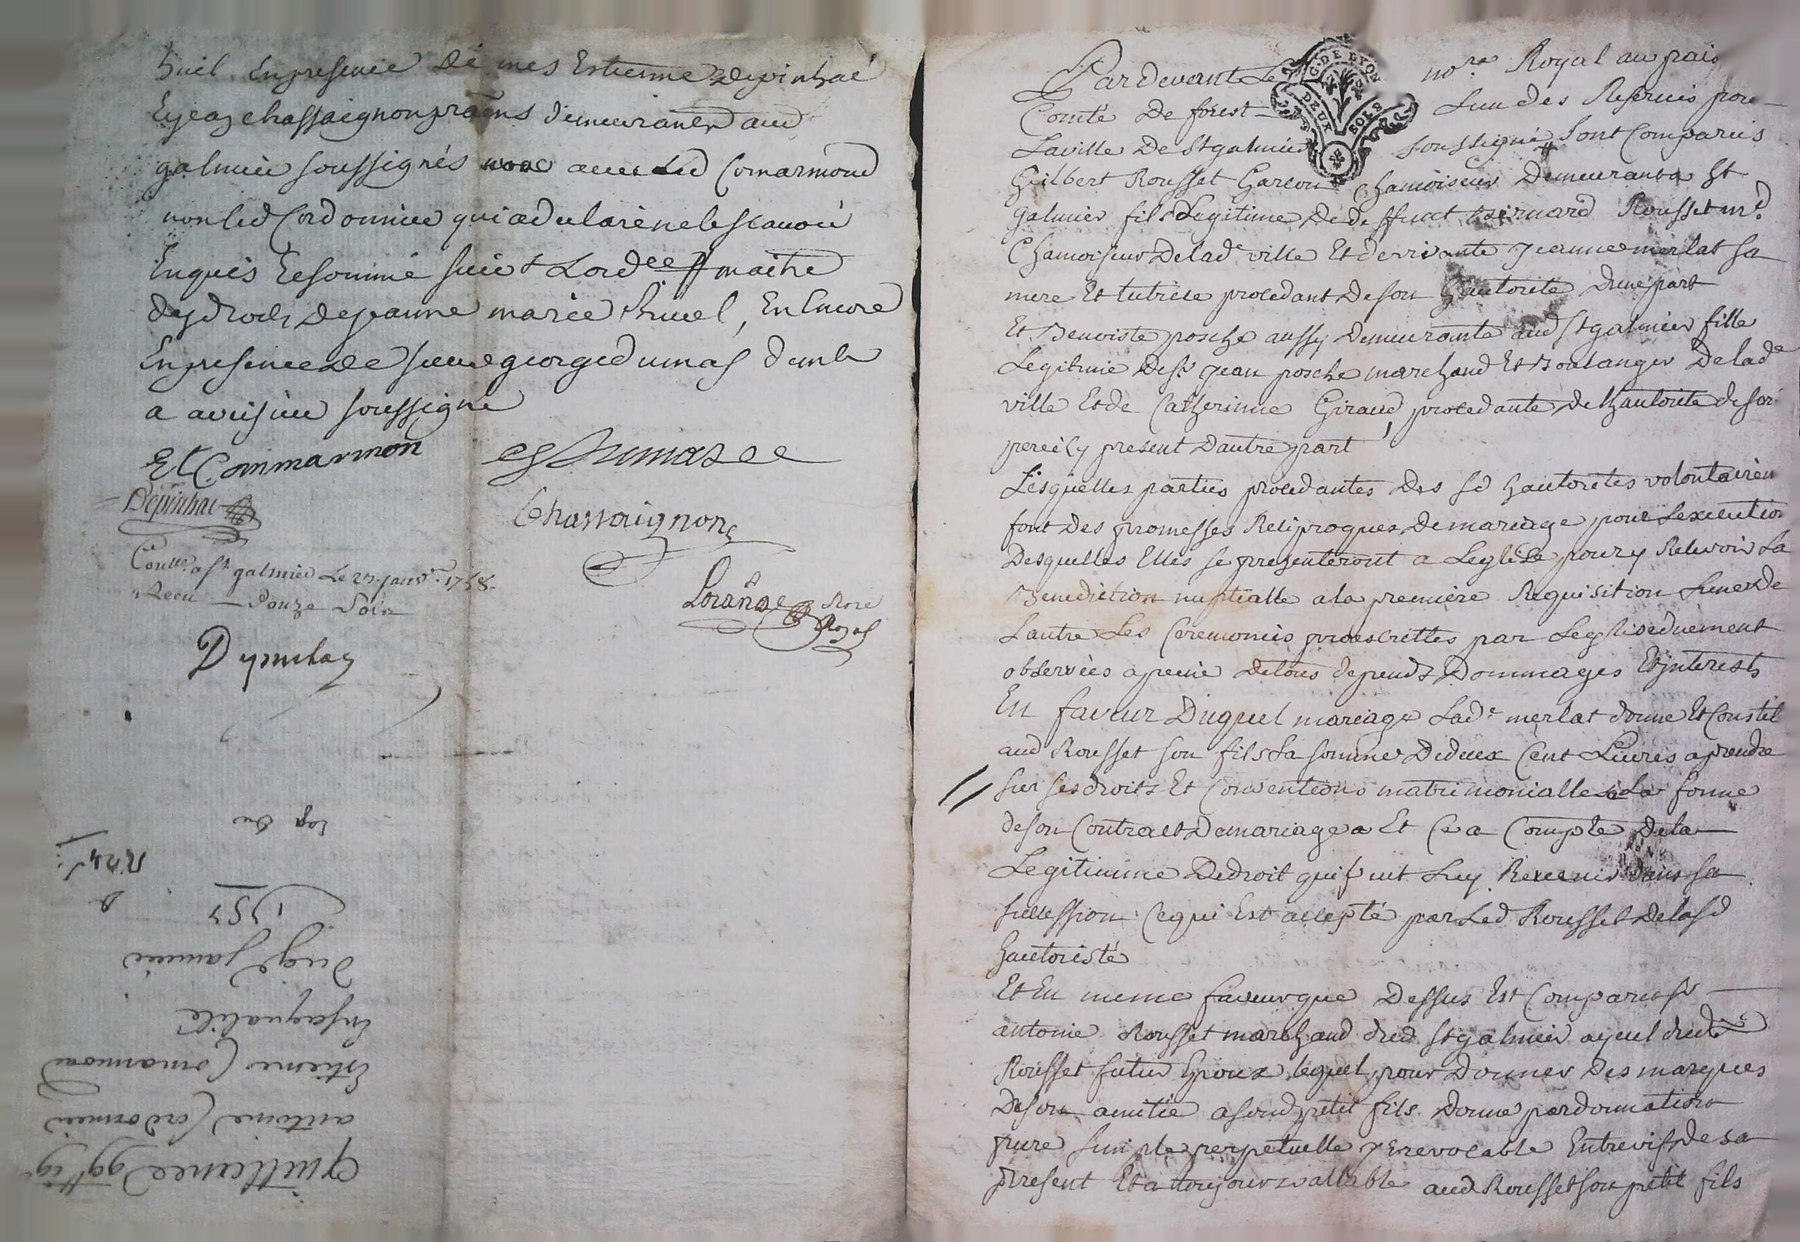 huel En presence de mes Estienne Depinhac
Et jean chassaignon pra͠ens demeurant aud
galmier soussignés avec Led Comarmond
non led Cordonnier qui a declaré ne le scavoir
Enquis Et sommé suivt Lordce maitre
des droits de jeanne marie huel, En Encore
En presence de sieur george dumas
a avisieu soussigné
Et Commarmon
Dumas
Depinhac
Chassaignon
Conttlé a St galmier Le 27 janvr 1758.
Receu douze sols
Lorange Nore
Royal
Depinhac
Quittance
antoine Cordonnier
Estienne Comarmond
En sa qualité
du janvier
Par devant Le nore Royal au païs
Comté De forest Lun des Reservés pour
La ville De St galmier soussigné sont Comparus
Gilbert Rousset Garcon Chamoiseur Demeurant a St
galmier fils Legitime De Deffunct Bernard Rousset md
Chamoiseur De lade ville Et de vivante jeanne merlat sa
mere Et tutrice procedant de son hautorité Dune part
Et Benoiste posche aussy Demeurante aud St galmier fille
Legitime de Sr jean posche marchand Et Boulanger De lade
ville Et de Catherinne Giraud procedante de lhautorité de son
pere icy present Dautre part
Lesquelles parties procedantes Des sd hautorités volontairemt
font des promesses Reciproques de mariage pour Lexecution
Desquelles Elles se presenteront a Leglise pour y Recevoir La
Benediction nuptialle a la premiere Requisition Lune de
Lautre Les Ceremonies prescrittes par Leglise duement
observées a peine de tous depends Dommages Et interests
En faveur Duquel mariage Lade merlat donne Et Constit
aud Rousset son fils La somme De deux Cent Livres a prendre
sur ses droits Et Conventions matrimonialles a La forme
de son Contract De mariage Et Ce a Compte de la
Legitimme De droit qui put Luy Revenir dans sa
sucession Ce qui Est accepté par Led Rousset De la sd
hautorisée
Et En meme faveur que Dessus Est Comparu sr
antoine Rousset marchand dud St galmier ayeul dud
Rousset futur Epoux lequel pour Donner Des marques
De son amitié a sond petit fils Donne par donnation
pure simple perpetuelle irrevocable Entre vifs de sa
present Et a toujours vallable aud Rousset son petit fils